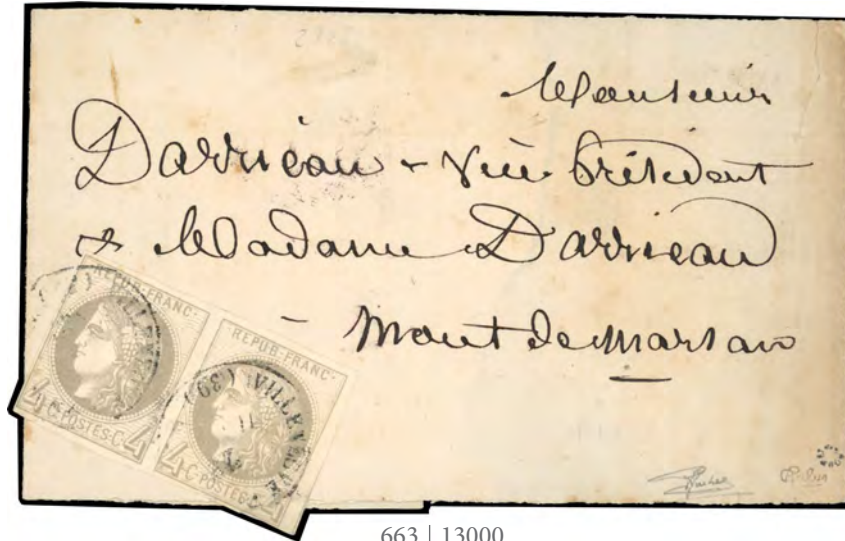 Monsieur
Darrieau - Vice Président
& Madame Darrieau
- Mont de Marsan
REPUB·FRANC·
4 C·POSTES·C 4
REPUB·FRANC·
4 C·POSTES·C 4
VILLENEUVE
(39)
663 | 13000